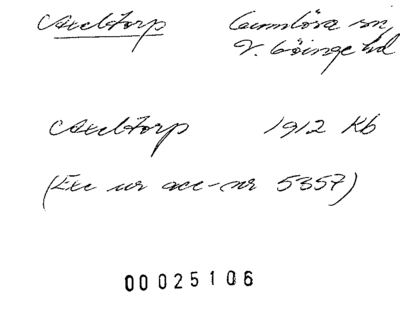 Axeltorp Gumlösa sn,
V. Göinge hd
Axeltorp 1912 Kb
(Exc ur acc-nr 5357)
00025106